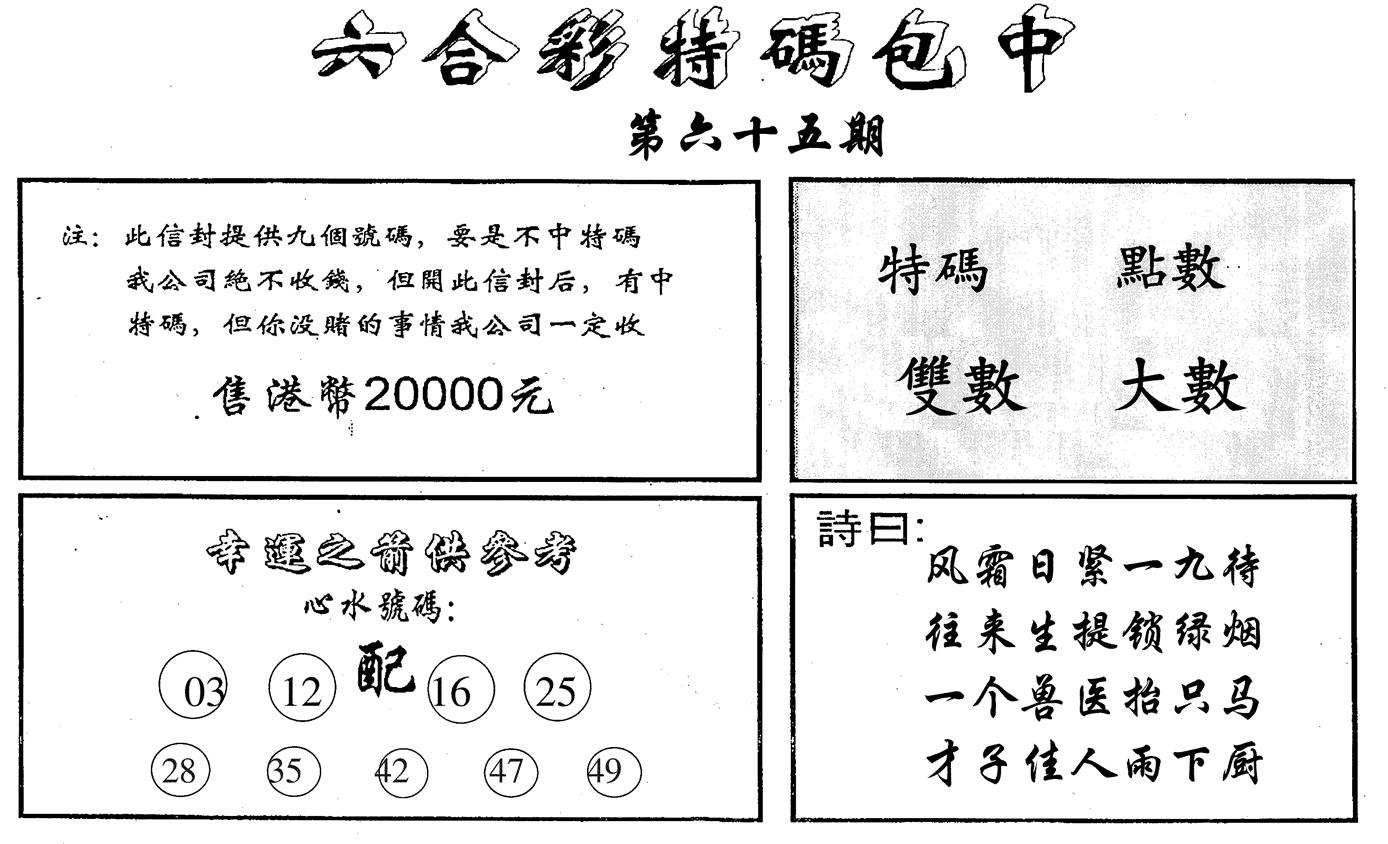 六合彩特碼包中
第六十五期
注：此信封提供九個號碼，要是不中特碼
我公司絕不收錢，但開此信封后，有中
特碼，但你没賭的事情我公司一定收
售港幣20000元
特碼 點數
雙數 大數
幸運之箭供參考
心水號碼：
03 12 配 16 25
28 35 42 47 49
詩曰：
风霜日紧一九待
往来生提锁绿烟
一个兽医抬只马
才子佳人雨下厨